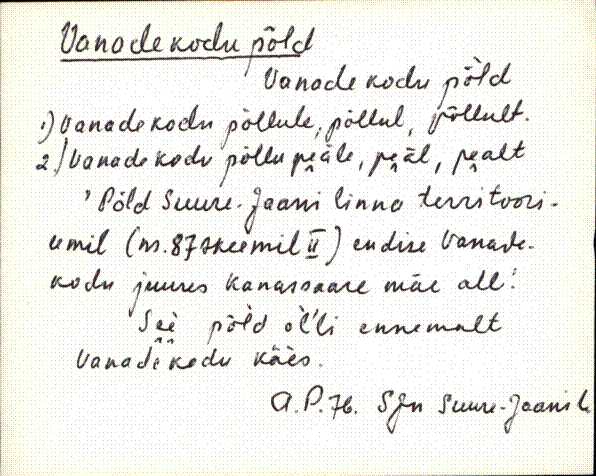 Vanadekodu põld
Vanade kodu põ̀ld
1) Vanade kodu põllule, põllul, põllult.
2) Vanade kodu põllu peäle, peäl, pealt
' Põld Suure-Jaani linna territoori-
umil (nr. 87 skeemil II) endise Vanade-
kodu juures Kanassaare mäe all.'
Seè põ̀ld òl'li ennemalt
Vanadekodu käès.
A.P. 76. SJn Suure-Jaani l.